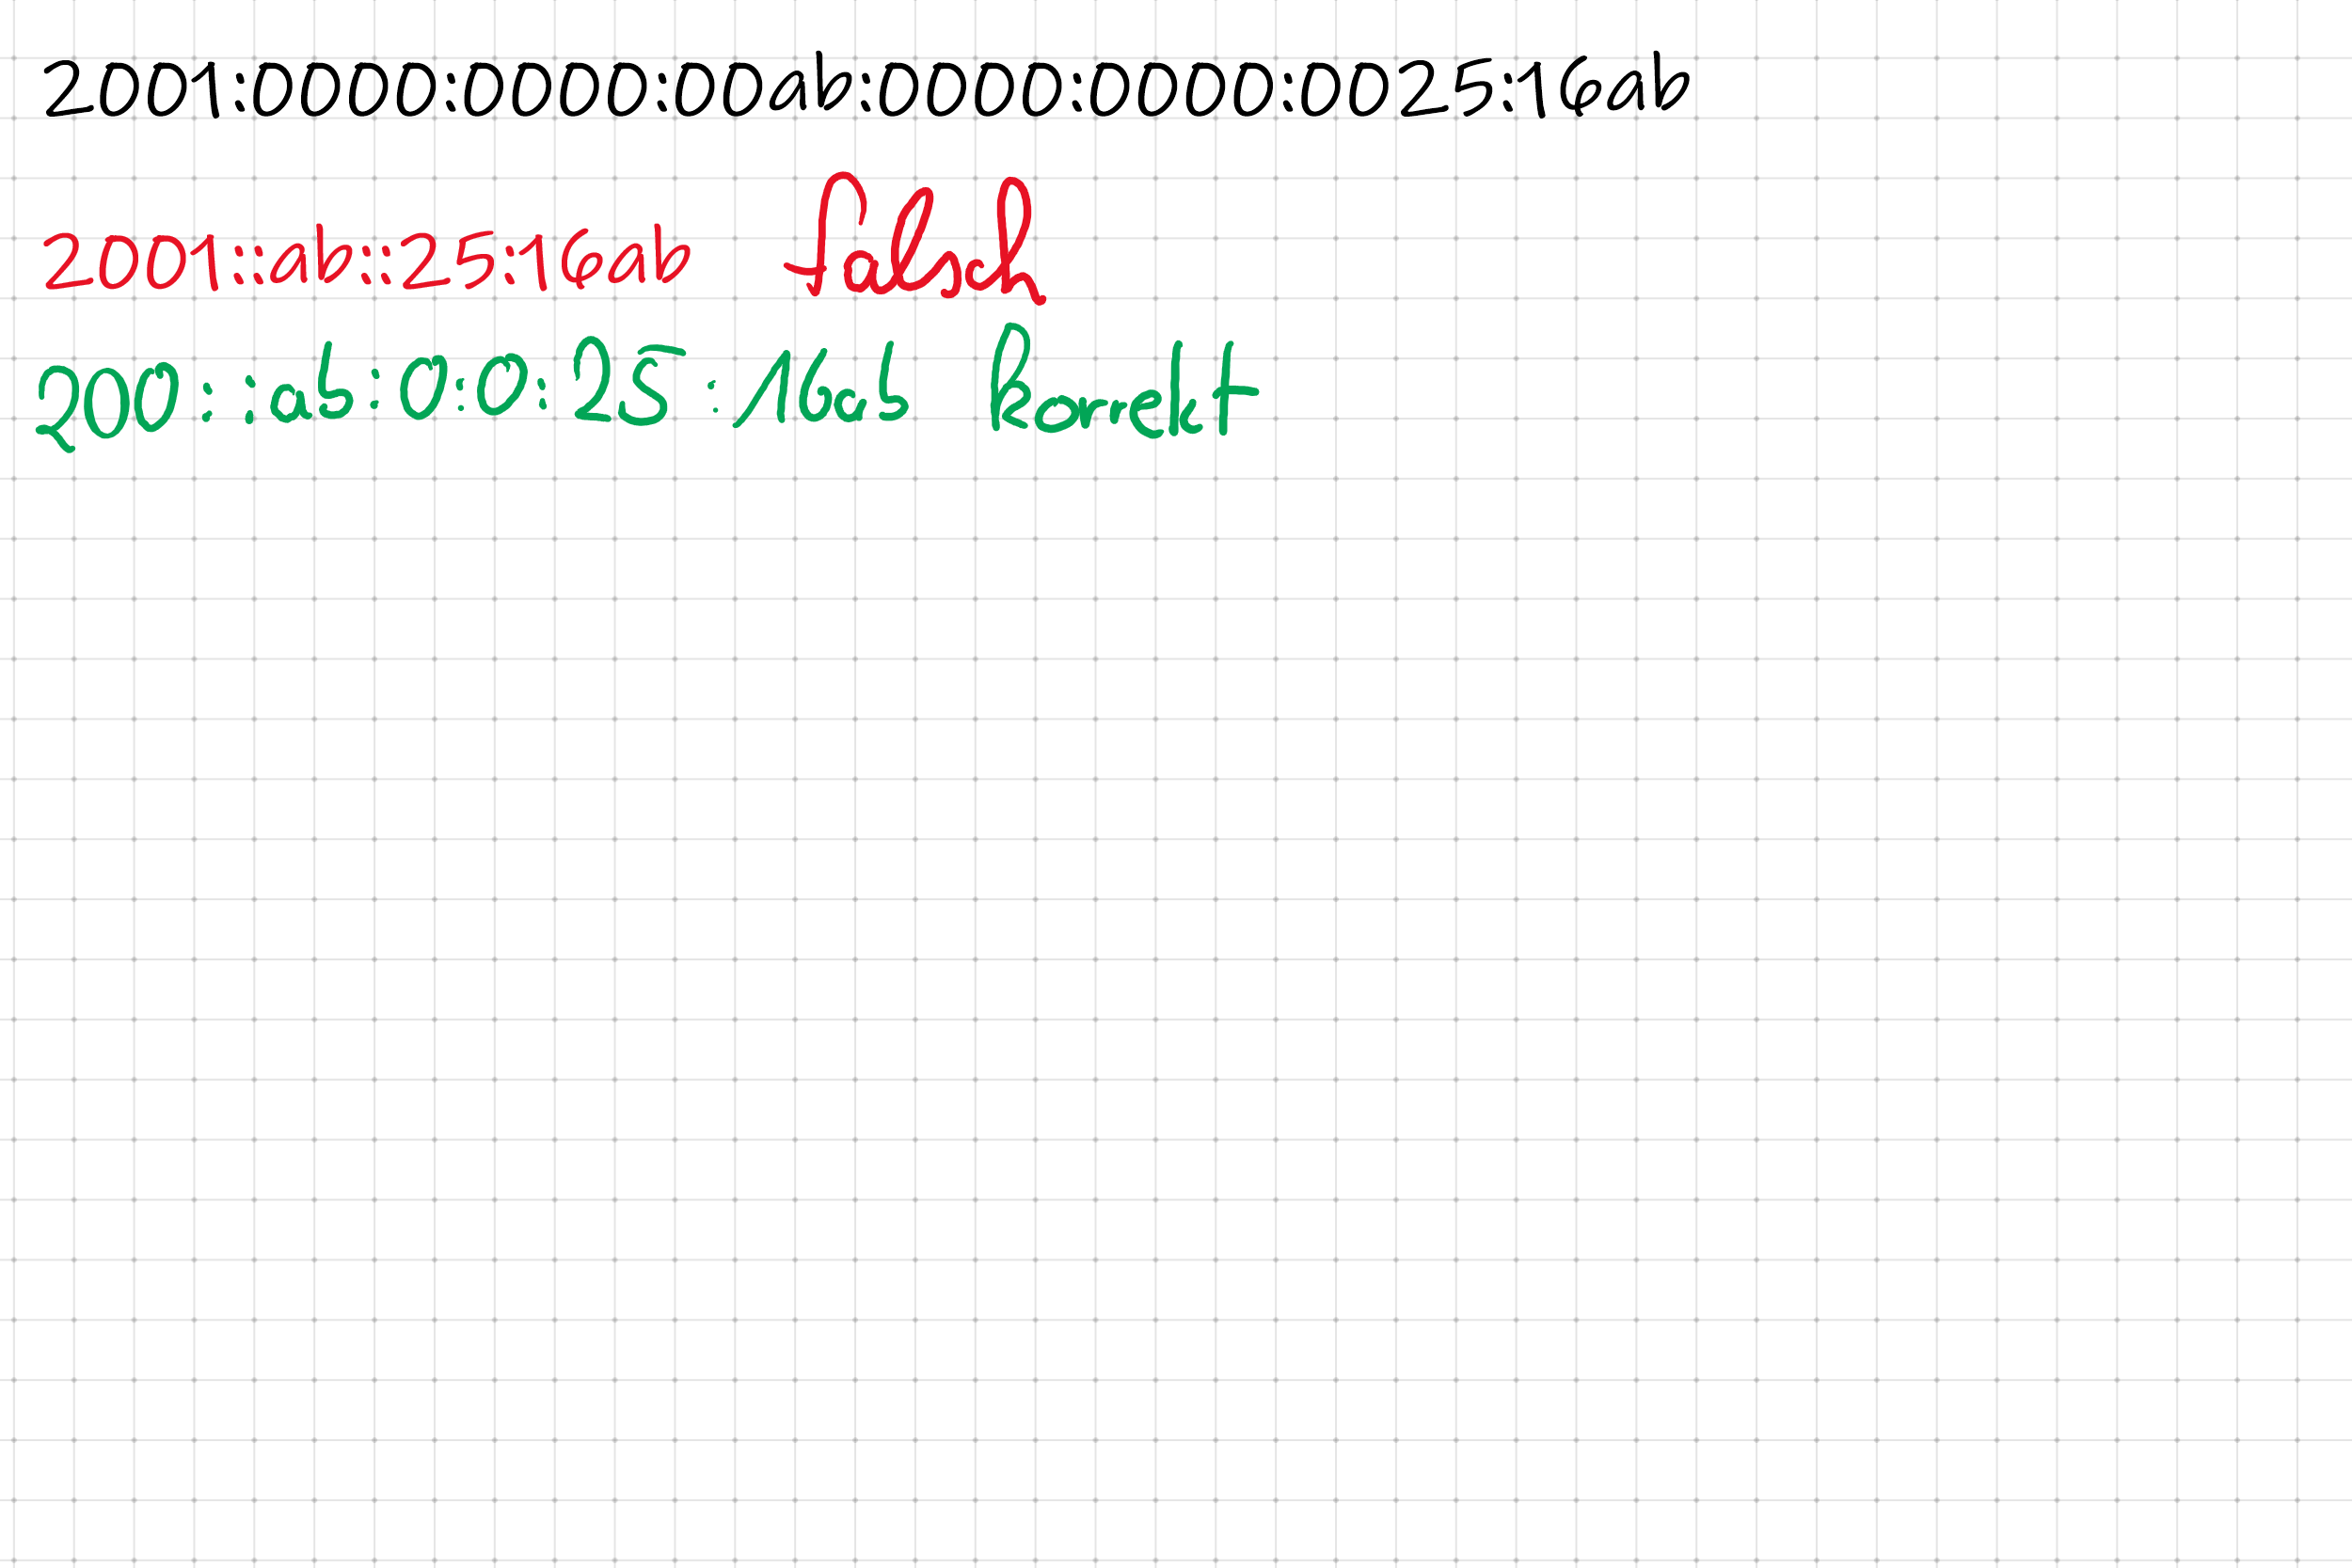 2001:0000:0000:00ab:0000:0000:0025:16ab
2001::ab::25:16ab falsch
200::ab:0:0:25:16ab korrekt